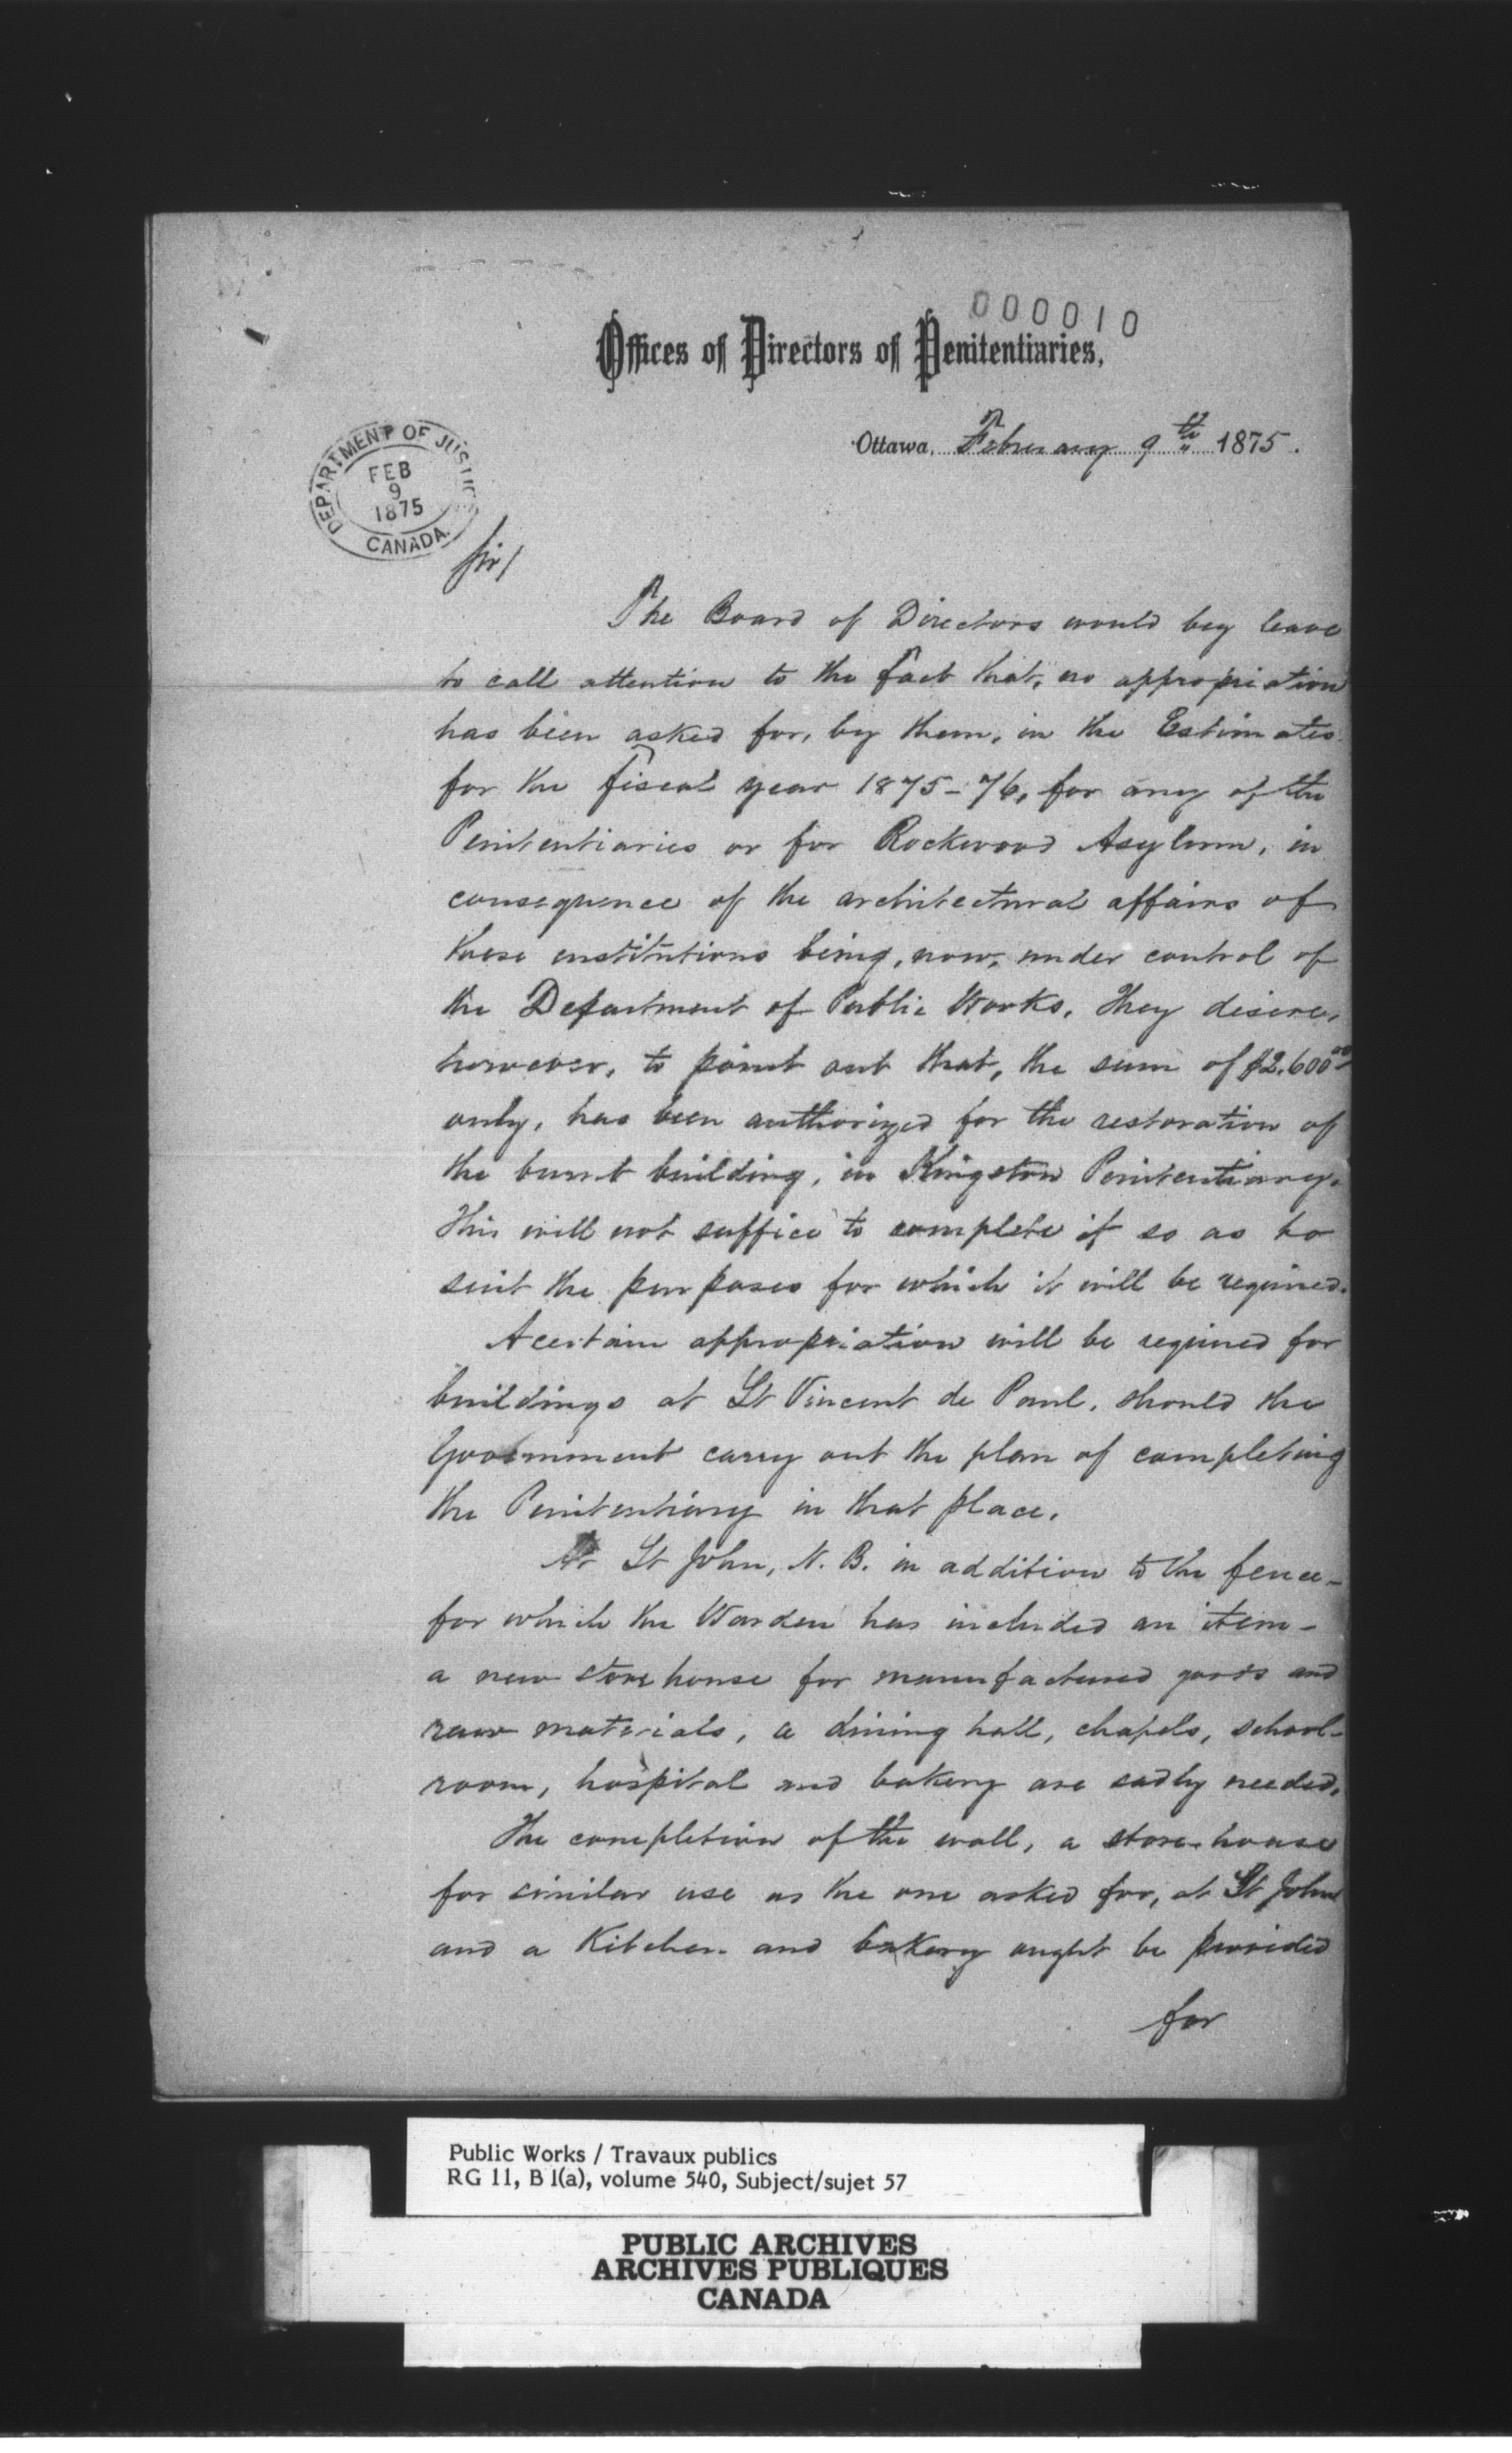 000010
Offices of Directors of Penitentiaries,
Ottawa, February 9th 1875.
DEPARTMENT OF JUSTICE
FEB
9
1875
CANADA
Sir/
The Board of Directors would beg leave
to call attention to the fact that, no appropriation
has been asked for, by them, in the Estimates
for the fiscal year 1875-76, for any of the
Penitentiaries or for Rockwood Asylum, in
consequence of the architectural affairs of
these institutions being, now, under control of
the Department of Public Works. They desire,
however, to point out that, the sum of $2.600 00
only, has been authorized for the restoration of
the burnt building, in Kingston Penitentiary.
This will not suffice to complete it so as to
suit the purposes for which it will be required.
A certain appropriation will be required for
buildings at St Vincent de Paul, should the
Government carry out the plan of completing
the Penitentiary in that place.
At St John, N. B. in addition to the fence-
for which the Warden has included an item-
a new store house for manufactured goods and
raw materials, a dining hall, chapels, school-
room, hospital and bakery are sadly needed.
The completion of the wall, a store-house
for similar use as the one asked for, at St John
and a Kitchen and bakery ought be provided
for
Public Works / Travaux publics
RG 11, B 1(a), volume 540, Subject/sujet 57
PUBLIC ARCHIVES
ARCHIVES PUBLIQUES
CANADA